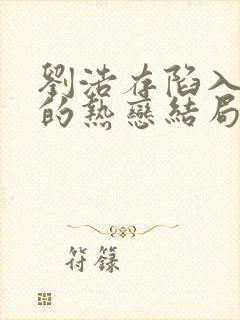 劉浩存陷入
的熱戀結局
符籙